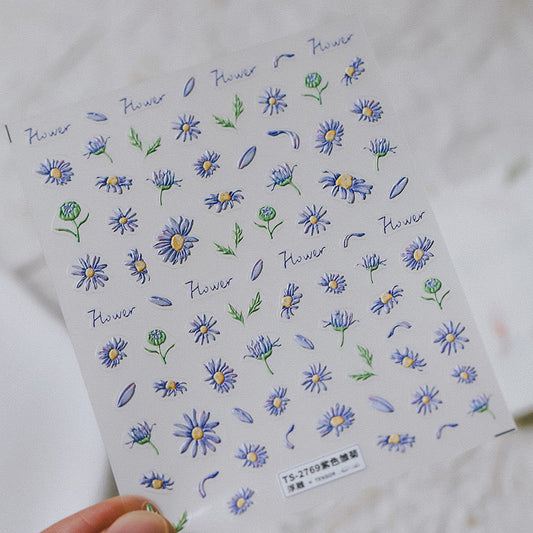 Flower
Flower
Flower
Flower
Flower
Flower
Flower
Flower
TS-2769紫色雏菊
浮雕 * TENSOR